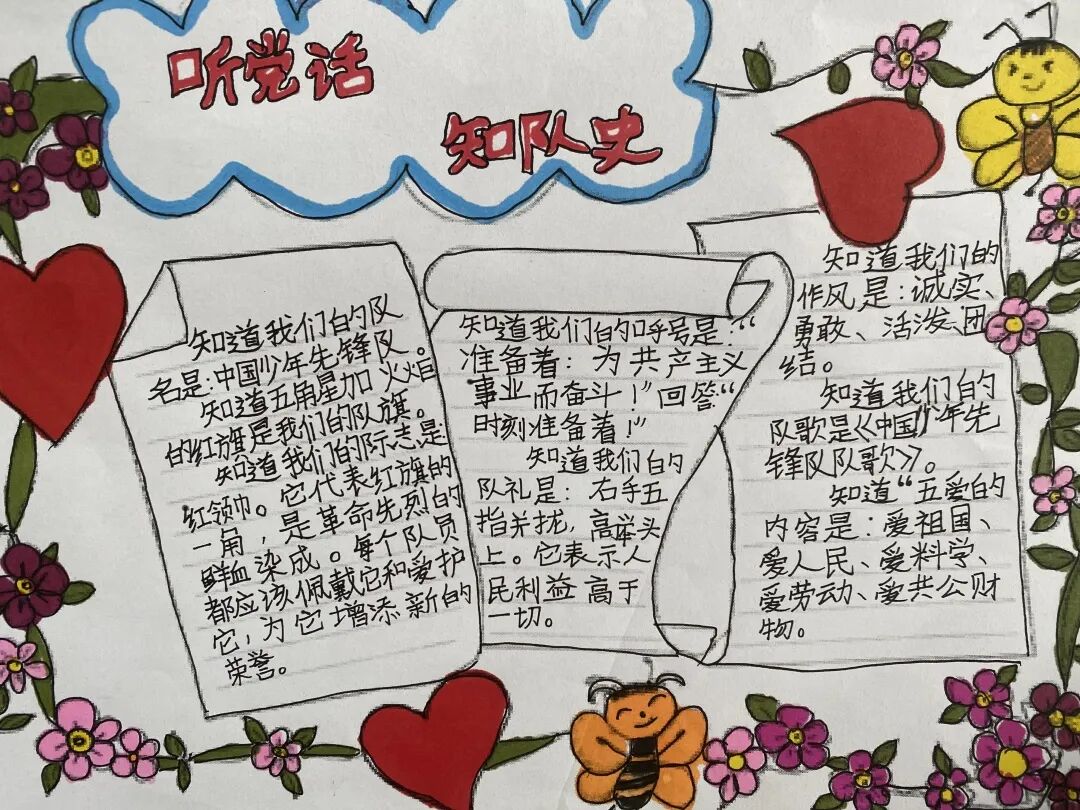 听党话
知队史
知道我们的队
名是:中国少年先锋队。
知道五角星加火焰
的红旗是我们的队旗。
知道我们的际志,是
红领巾。它代表红旗的
一角,是革命先烈的
鲜血染成。每个队员
都应该佩戴它和爱护
它,为它增添新的
荣誉。
知道我们的呼号是:“
准备着:为共产主义
事业而奋斗!”回答“
时刻准备着!”
知道我们的
队礼是:右手五
指并拢,高举头
上。它表示人
民利益高于
一切。
知道我们的
作风是:诚实、
勇敢、活泼、团
结。
知道我们的
队歌是《中国少年先
锋队队歌》。
知道“五爱的
内容是:爱祖国、
爱人民、爱科学、
爱劳动、爱共公财
物。